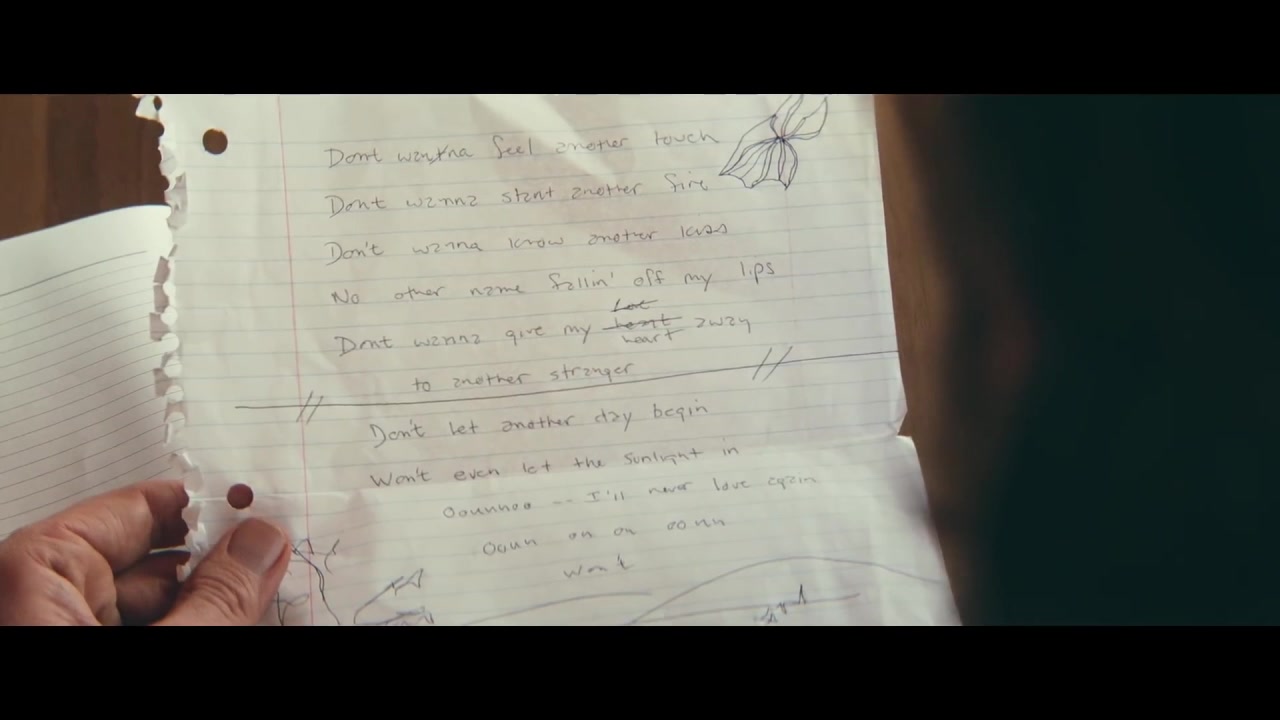 Dont wanna feel another touch
Dont wanna start another fire
Don't wanna know another kiss
No other name fallin' off my lips
Dont wanna give my heart away
to another stranger
Don't let another day begin
Won't even let the sunlight in
-- I'll never love again
Won't